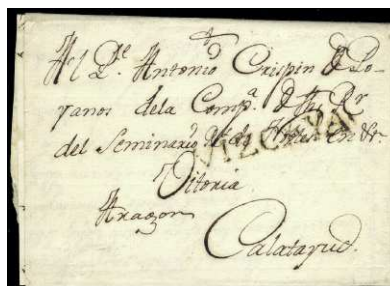 Al P.e Antonio Crispin d Po-
yanos dela Comp.a d Jhs Rr
del Seminario
Vitoria
Aragon
Calatayud.